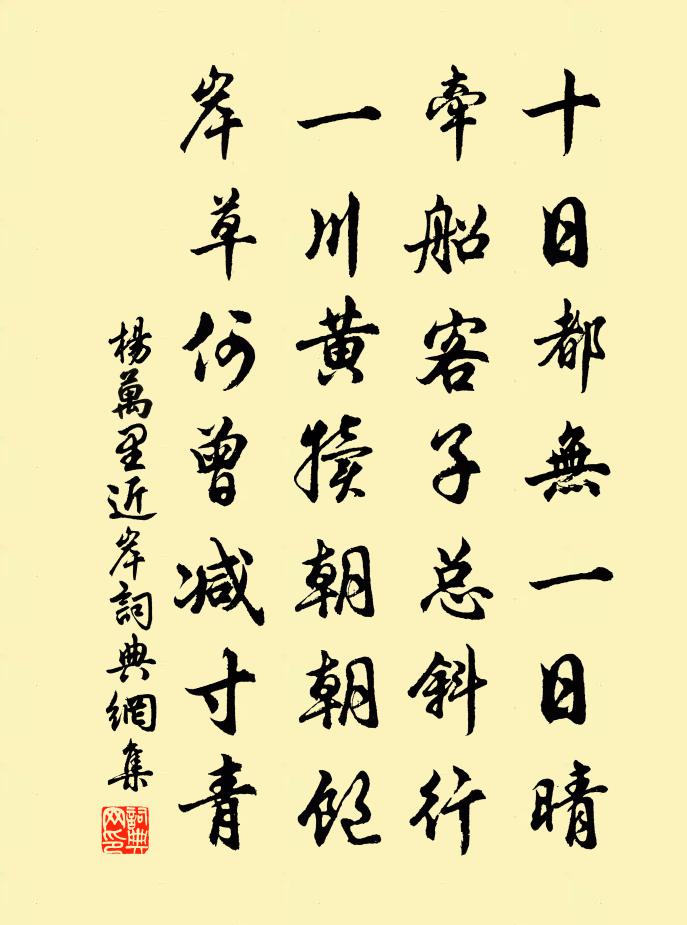 十日都無一日晴
牽船客子总斜行
一川黄犢朝朝飽
岸草何曾减寸青
楊萬里近岸詞典網集
詞典网印